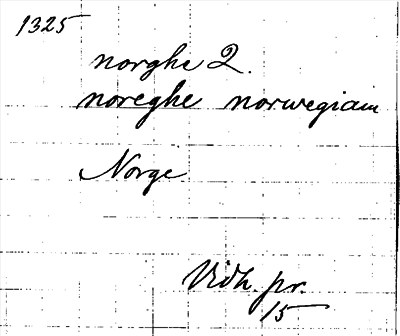 1325
norghe 2.
noreghe norwegiam
Norge
Vidh. pr.
15